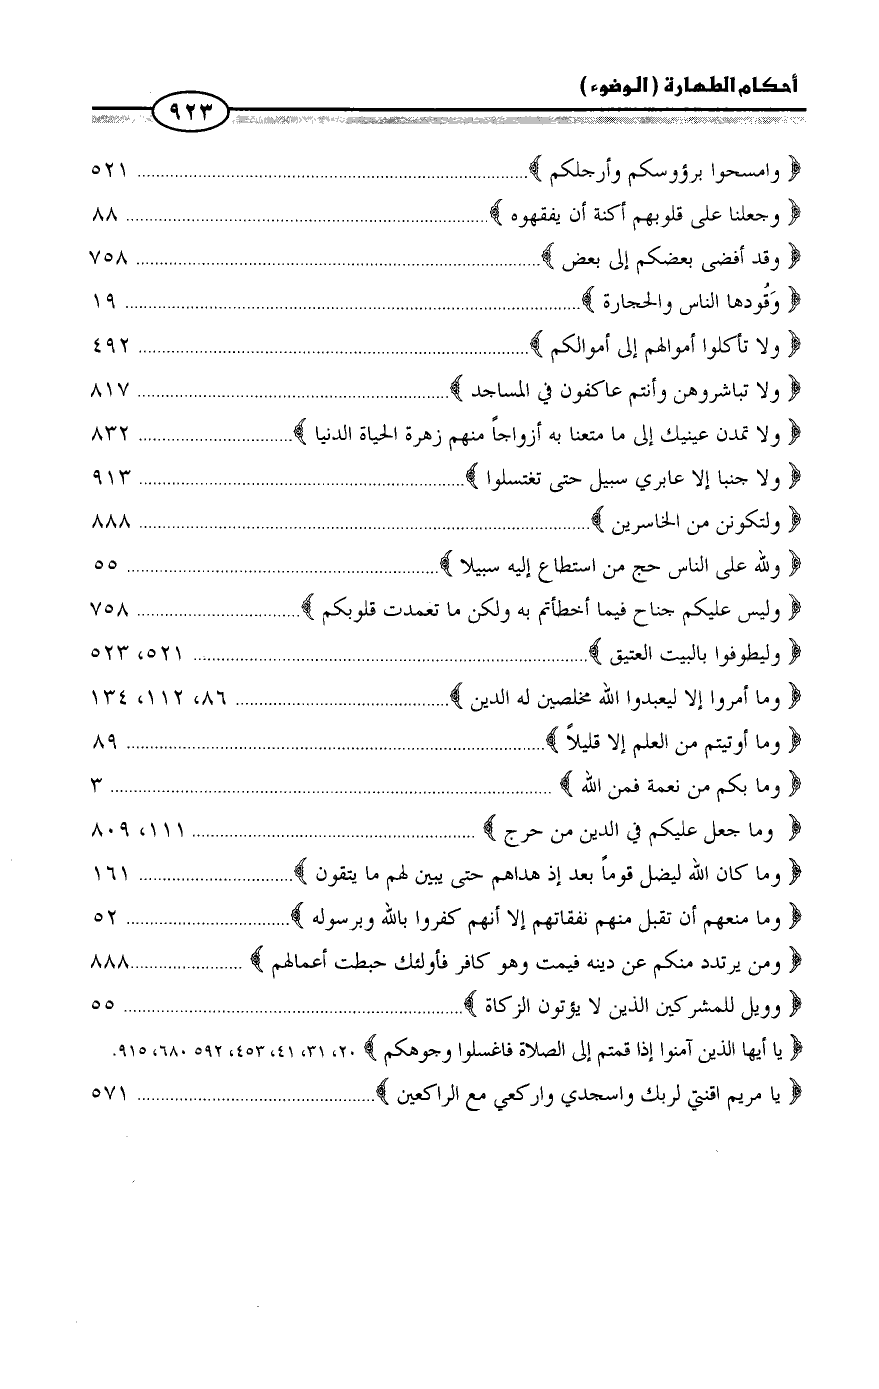 أحكام الطهارة (الوضوء)
٩٢٣
﴿ وامسحوا برؤوسكم وأرجلكم ﴾ ........ ٥٢١
﴿ وجعلنا على قلوبهم أكنة أن يفقهوه ﴾ ........ ٨٨
﴿ وقد أفضى بعضكم إلى بعض ﴾ ........ ٧٥٨
﴿ وَقُودها الناس والحجارة ﴾ ........ ١٩
﴿ ولا تأكلوا أموالهم إلى أموالكم ﴾ ........ ٤٩٢
﴿ ولا تباشروهن وأنتم عاكفون في المساجد ﴾ ........ ٨١٧
﴿ ولا تمدن عينيك إلى ما متعنا به أزواجاً منهم زهرة الحياة الدنيا ﴾ ........ ٨٣٢
﴿ ولا جنبا إلا عابري سبيل حتى تغتسلوا ﴾ ........ ٩١٣
﴿ ولتكونن من الخاسرين ﴾ ........ ٨٨٨
﴿ ولله على الناس حج من استطاع إليه سبيلا ﴾ ........ ٥٥
﴿ وليس عليكم جناح فيما أخطأتم به ولكن ما تعمدت قلوبكم ﴾ ........ ٧٥٨
﴿ وليطوفوا بالبيت العتيق ﴾ ........ ٥٢١، ٥٢٣
﴿ وما أمروا إلا ليعبدوا الله مخلصين له الدين ﴾ ........ ٨٦، ١١٢، ١٣٤
﴿ وما أوتيتم من العلم إلا قليلاً ﴾ ........ ٨٩
﴿ وما بكم من نعمة فمن الله ﴾ ........ ٣
﴿ وما جعل عليكم في الدين من حرج ﴾ ........ ١١١، ٨٠٩
﴿ وما كان الله ليضل قوماً بعد إذ هداهم حتى يبين لهم ما يتقون ﴾ ........ ١٦١
﴿ وما منعهم أن تقبل منهم نفقاتهم إلا أنهم كفروا بالله وبرسوله ﴾ ........ ٥٢
﴿ ومن يرتدد منكم عن دينه فيمت وهو كافر فأولئك حبطت أعمالهم ﴾ ........ ٨٨٨
﴿ وويل للمشركين الذين لا يؤتون الزكاة ﴾ ........ ٥٥
﴿ يا أيها الذين آمنوا إذا قمتم إلى الصلاة فاغسلوا وجوهكم ﴾ ٢٠، ٣١، ٤١، ٤٥٣، ٥٩٢ ٦٨٠، ٩١٥.
﴿ يا مريم اقنتي لربك واسجدي واركعي مع الراكعين ﴾ ........ ٥٧١